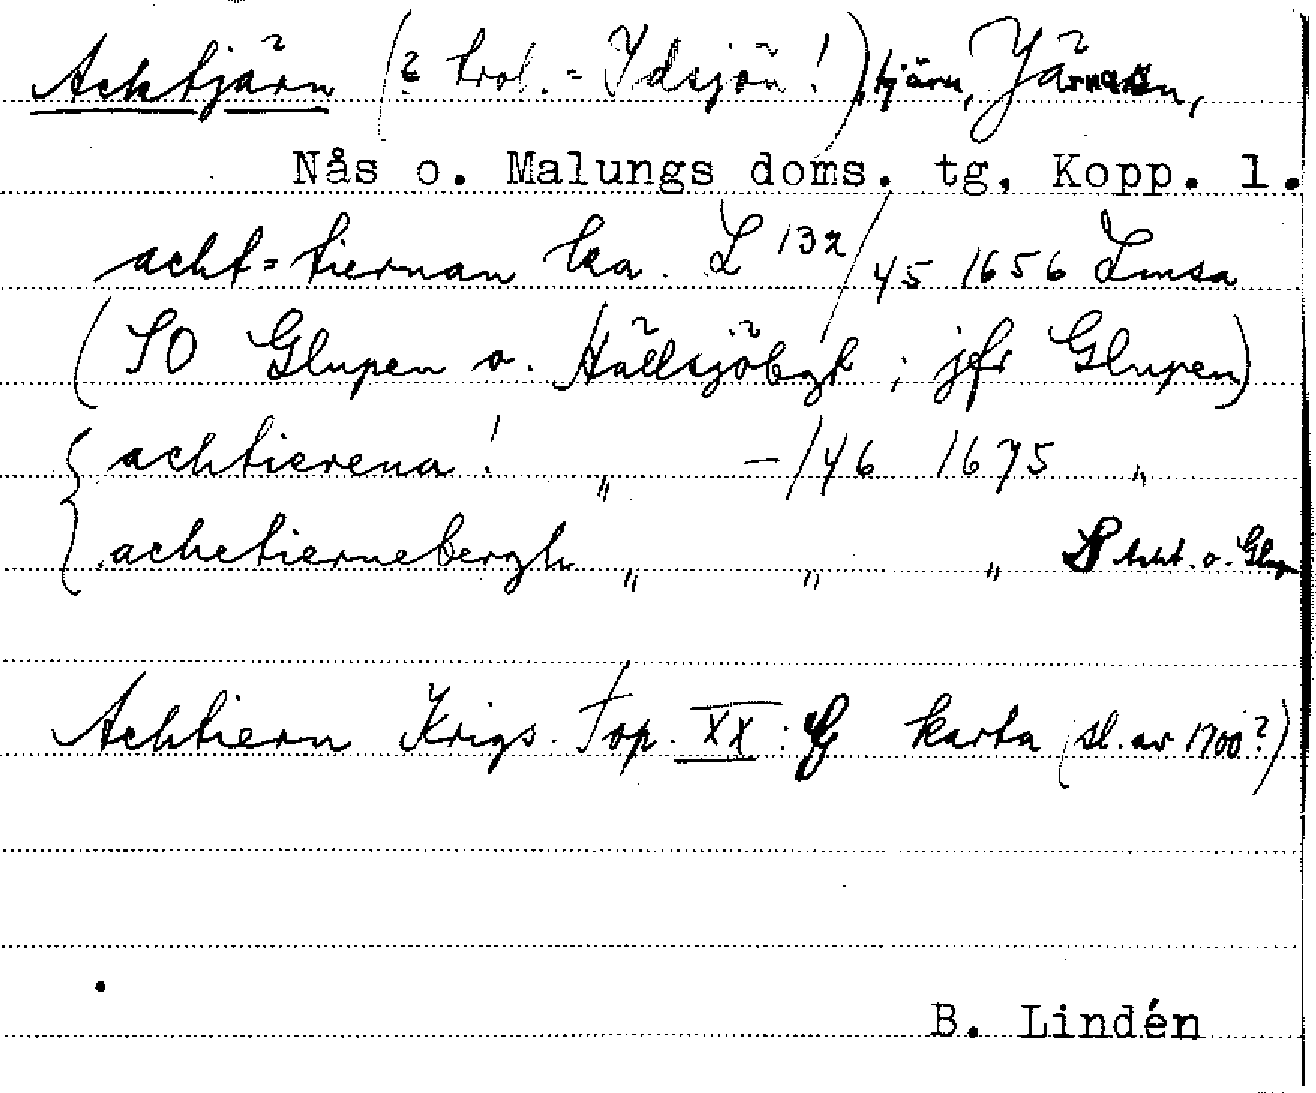 Acktjärn (? trol. = Idsjön!), tjärn, Järna sn,
Nås o. Malungs doms. tg, Kopp. l.
acht=tiernan ka. L 132/45 1656 Lmsa
(SO Glupen o. Hällsjöbgt; jfr Glupen)
achtierena! " -/46 1675 "
achetiernebergh " " " S Acht. o. Glup
Achtiern Krigs. Top. XX. karta (sl. av 1700?)
B. Lindén